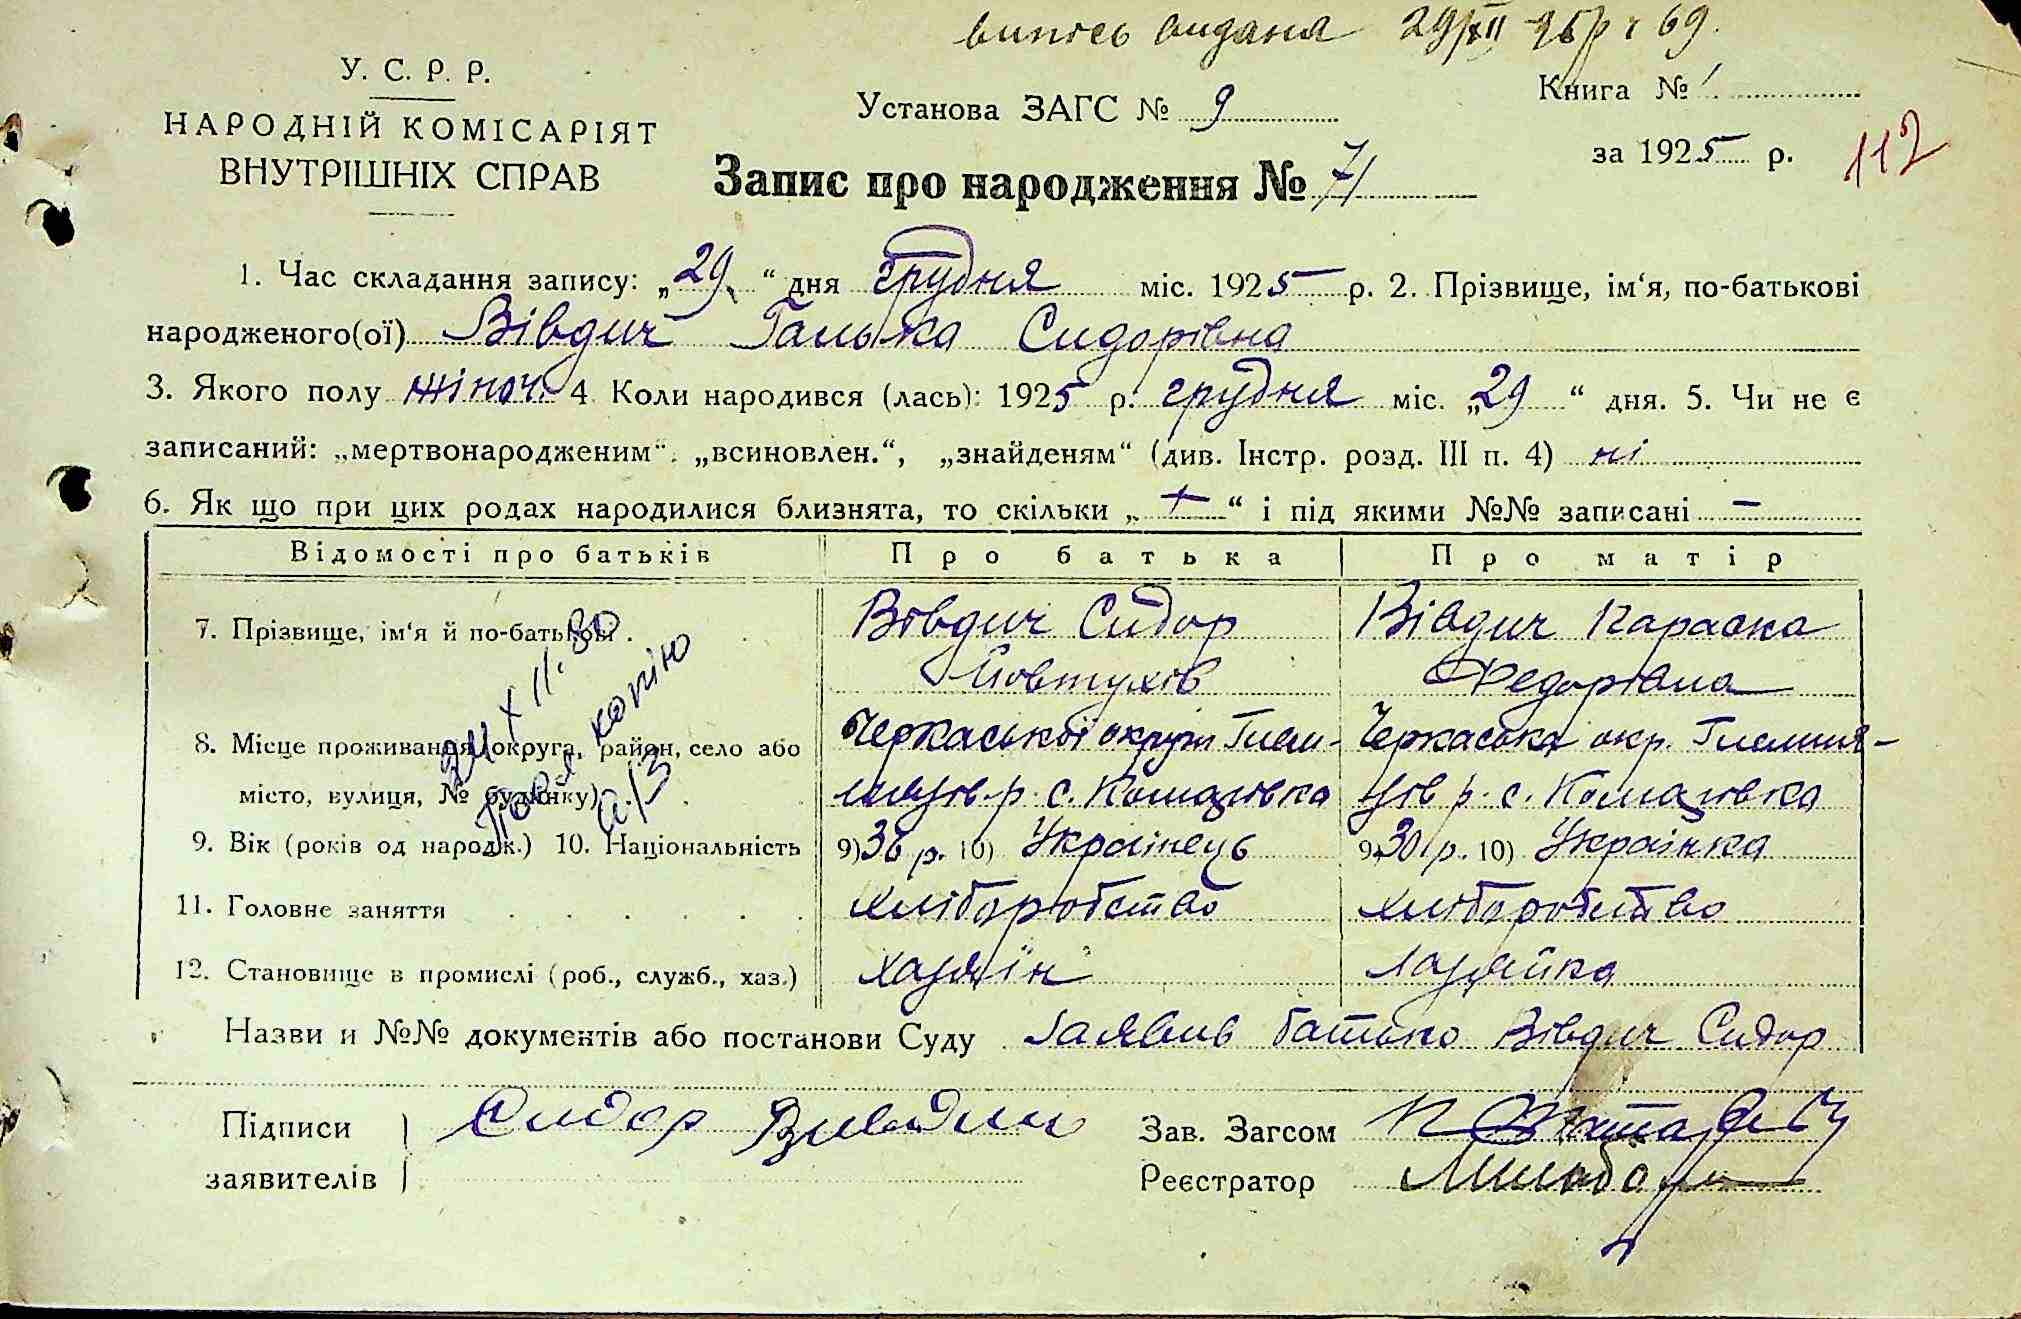 випись видана 29/XII
У. С. Р. Р.
НАРОДНІЙ КОМІСАРІЯТ
ВНУТРІШНІХ СПРАВ
Установа ЗАГС № 9
Книга № 1
за 1925 р.
112
Запис про народження № 71
1. Час складання запису: „29“ дня грудня міс. 1925 р. 2. Прізвище, ім‘я, по-батькові
народженого(ої) Вівдич Галька Сидорівна
3. Якого полу жіноч. 4. Коли народився (лась): 1925 р. грудня міс. „29“ дня. 5. Чи не є
записаний: „мертвонародженим“, „всиновлен.“, „знайденям“ (див. Інстр. розд. III п. 4) ні
6. Як що при цих родах народилися близнята, то скільки „ — “ і під якими №№ записані —
Відомості про батьків Про батька Про матір
7. Прізвище, ім‘я й по-батькові. Вівдич Сидор Вівдич Параска
Йовтухів Федорівна
8. Місце проживання (округа, район, село або Черкаської округи Гель- Черкаська окр. Гельмя-
місто, вулиця, № будинку) мязів. р. с. Комарівка зів р. с. Комарівка
9. Вік (років од народж.) 10. Національність 9) 36 р. 10) Українець 9) 30 р. 10) Українка
11. Головне заняття хліборобство хліборобство
12. Становище в промислі (роб., служб., хаз.) хазяїн хазяйка
копію
Назви и №№ документів або постанови Суду Заявив батько Вівдич Сидор
Підписи заявителів Сидор Вивдич
Зав. Загсом
Реєстратор